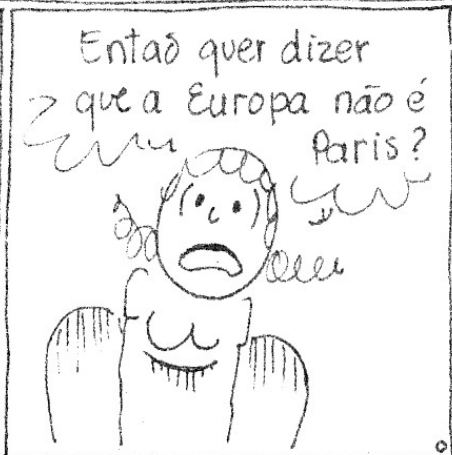 Entaõ quer dizer
que a Europa não é
Paris?